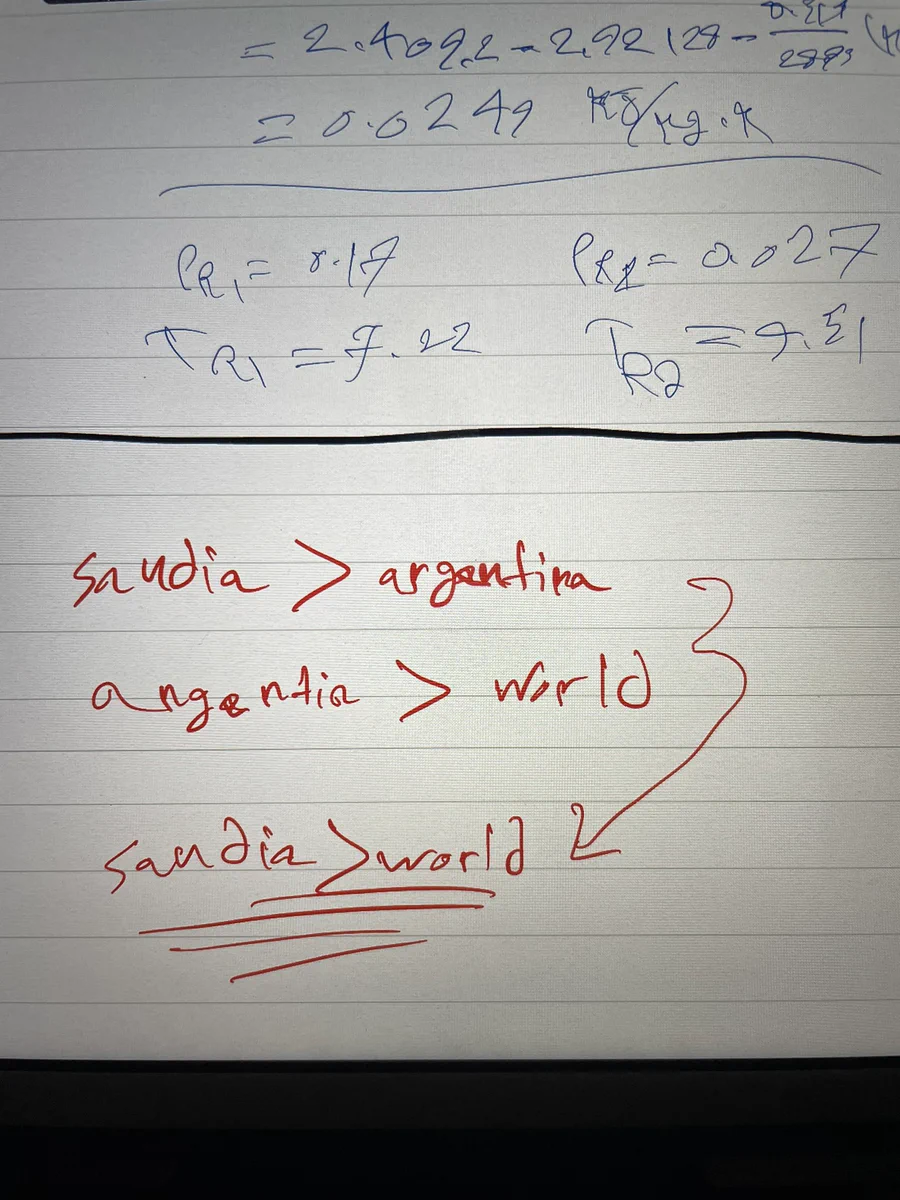 = 2.4092 - 2.92128 -
= 0.0249 kJ/kg.K
PR1 = 0.17 PR2 = 0.027
TR1 = 7.22 TR2 =
saudia > argentina
argentia > world
saudia > world